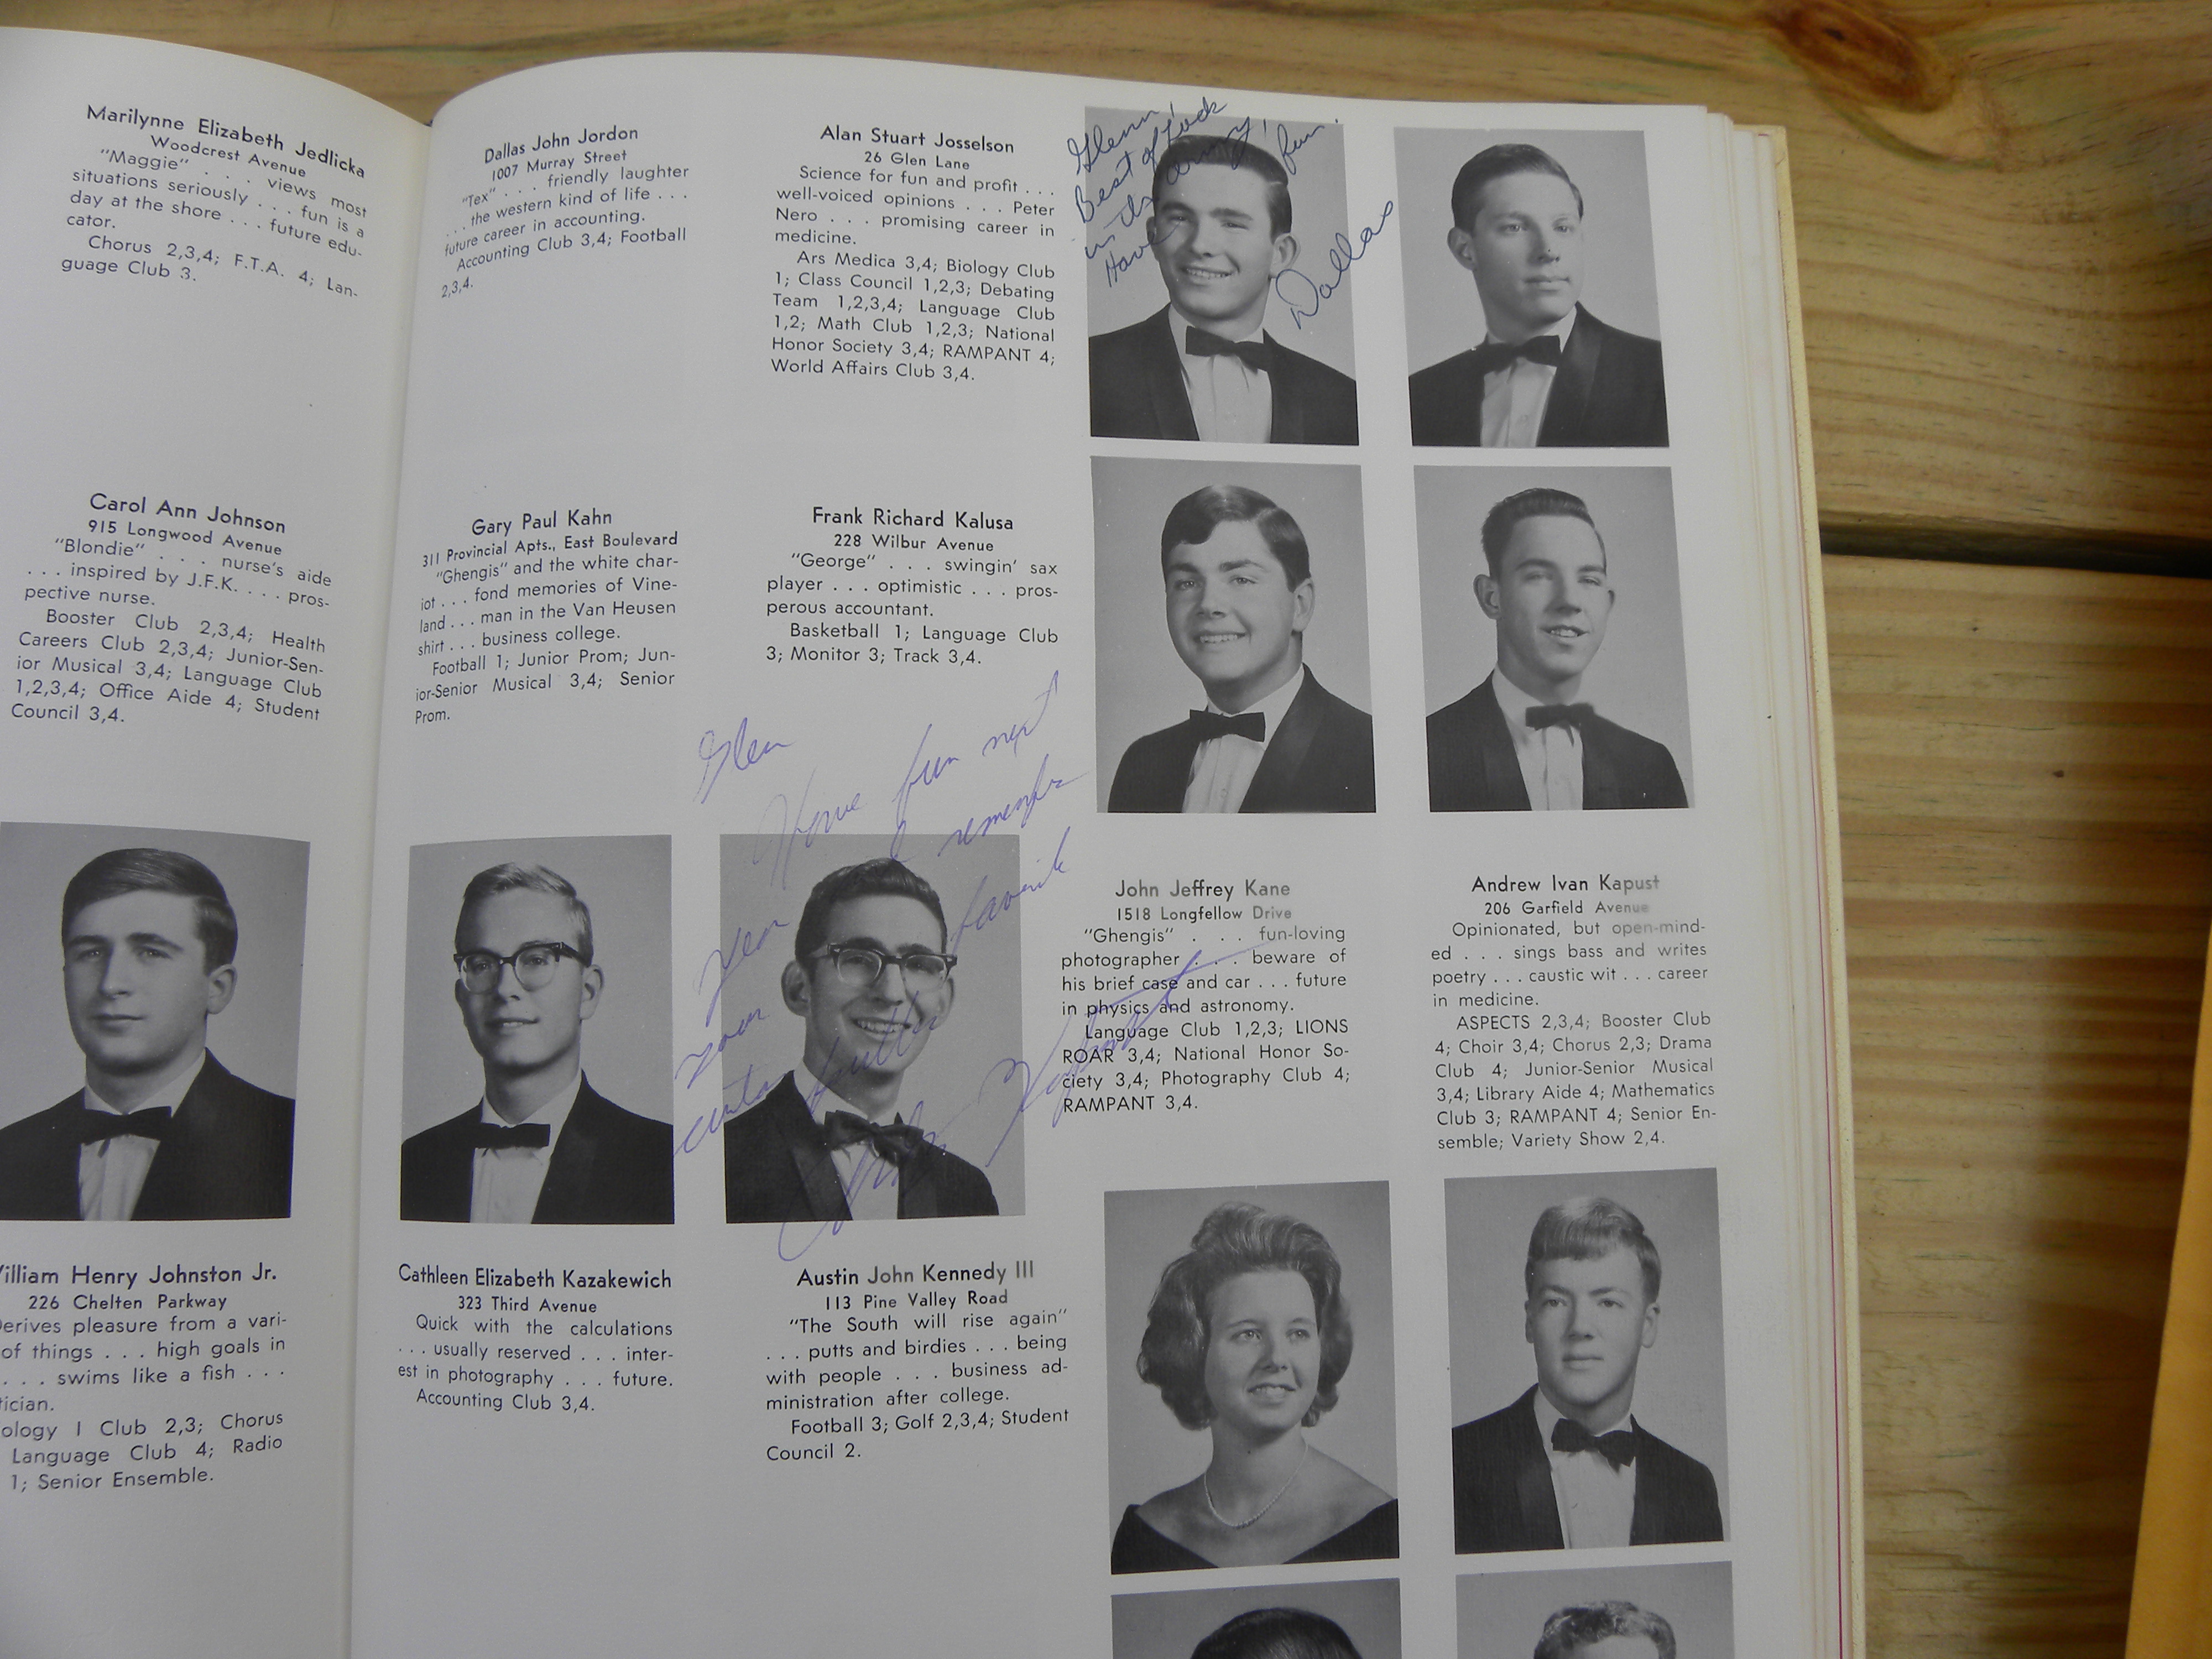 Marilynne Elizabeth Jedlicka
Woodcrest Avenue
"Maggie" . . . views most
situations seriously . . . fun is a
day at the shore . . . future edu-
cator.
Chorus 2,3,4; F.T.A. 4; Lan-
guage Club 3.
Carol Ann Johnson
915 Longwood Avenue
"Blondie" . . . nurse's aide
. . . inspired by J.F.K. . . . pros-
pective nurse.
Booster Club 2,3,4; Health
Careers Club 2,3,4; Junior-Sen-
ior Musical 3,4; Language Club
1,2,3,4; Office Aide 4; Student
Council 3,4.
William Henry Johnston Jr.
226 Chelten Parkway
Derives pleasure from a vari-
of things . . . high goals in
. . . swims like a fish . . .
tician.
ology I Club 2,3; Chorus
Language Club 4; Radio
1; Senior Ensemble.
Dallas John Jordon
1007 Murray Street
"Tex" . . . friendly laughter
. . . the western kind of life . . .
future career in accounting.
Accounting Club 3,4; Football
2,3,4.
Alan Stuart Josselson
26 Glen Lane
Science for fun and profit . . .
well-voiced opinions . . . Peter
Nero . . . promising career in
medicine.
Ars Medica 3,4; Biology Club
1; Class Council 1,2,3; Debating
Team 1,2,3,4; Language Club
1,2; Math Club 1,2,3; National
Honor Society 3,4; RAMPANT 4;
World Affairs Club 3,4.
Glenn,
Best of Luck
in the army,
Have fun.
Dallas
Gary Paul Kahn
311 Provincial Apts., East Boulevard
"Ghengis" and the white char-
iot . . . fond memories of Vine-
land . . . man in the Van Heusen
shirt . . . business college.
Football 1; Junior Prom; Jun-
ior-Senior Musical 3,4; Senior
Prom.
Frank Richard Kalusa
228 Wilbur Avenue
"George" . . . swingin' sax
player . . . optimistic . . . pros-
perous accountant.
Basketball 1; Language Club
3; Monitor 3; Track 3,4.
Glen
Have fun next
year & remember
your favorite
John Jeffrey Kane
1518 Longfellow Drive
"Ghengis" . . . fun-loving
photographer . . . beware of
his brief case and car . . . future
in physics and astronomy.
Language Club 1,2,3; LIONS
ROAR 3,4; National Honor So-
ciety 3,4; Photography Club 4;
RAMPANT 3,4.
Andrew Ivan Kapust
206 Garfield Avenue
Opinionated, but open-mind-
ed . . . sings bass and writes
poetry . . . caustic wit . . . career
in medicine.
ASPECTS 2,3,4; Booster Club
4; Choir 3,4; Chorus 2,3; Drama
Club 4; Junior-Senior Musical
3,4; Library Aide 4; Mathematics
Club 3; RAMPANT 4; Senior En-
semble; Variety Show 2,4.
Cathleen Elizabeth Kazakewich
323 Third Avenue
Quick with the calculations
. . . usually reserved . . . inter-
est in photography . . . future.
Accounting Club 3,4.
Austin John Kennedy III
113 Pine Valley Road
"The South will rise again"
. . . putts and birdies . . . being
with people . . . business ad-
ministration after college.
Football 3; Golf 2,3,4; Student
Council 2.